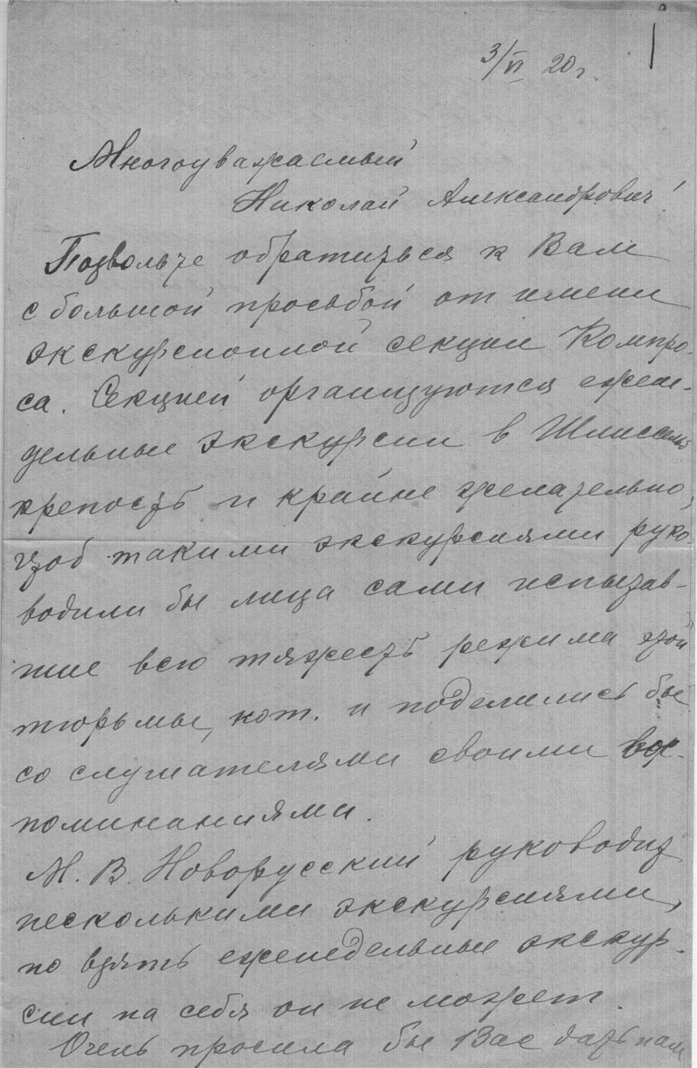 3/VI 20 г.
Многоуважаемый
Николай Александрович!
Позвольте обратиться к Вам
с большой просьбой от имени
экскурсионной секции Компро-
са. Секцией организуются ежене-
дельные экскурсии в Шлиссель
крепость и крайне желательно,
чтоб такими экскурсиями руко
водили бы лица сами испытав-
шие всю тяжесть режима этой
тюрьмы, кот. и поделились бы
со слушателями своими вос-
поминаниями.
М. В. Новорусский руководит
несколькими экскурсиями,
но взять еженедельные экскур-
сии на себя он не может.
Очень просила бы Вас дать нам